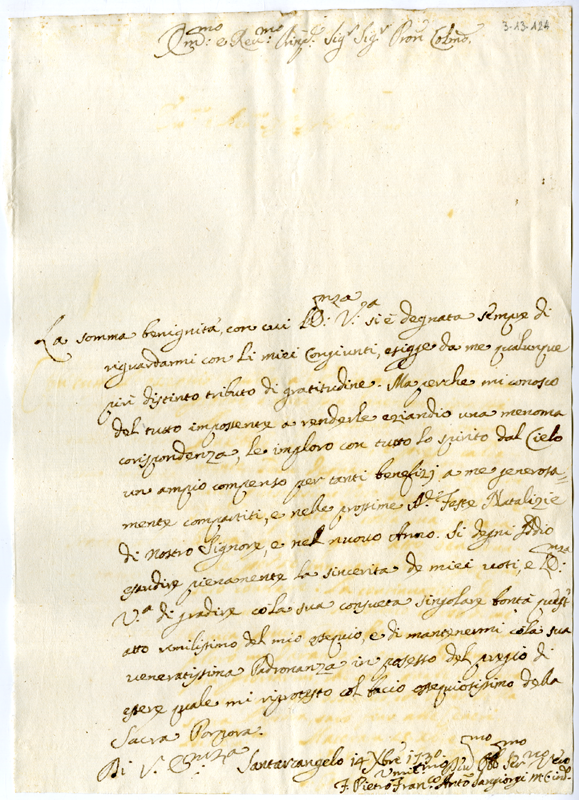 3-13-124
Em.mo e Rev.mo Sig.r Sig.r Pron Colmo.
La somma benignita, con cui l'E.nza V.a si è degnata sempre di
riguardarmi con li miei Congiunti, esigge da me qualunque
più distinto tributo di gratitudine. Ma perche mi conosco
del tutto impotente a renderle eziandio una menoma
corispondenza, le imploro con tutto lo spirito dal Cielo
un ampio compenso per tanti benefizj a me generosa=
mente compartiti, e nelle prossime Feste Natalizie
di Nostro Signore, e nel nuovo Anno. Si degni Iddio
esaudire pienamente la sincerita de miei voti, e l'E.nza
V.a di gradire cola sua consueta singolare bontà quest'
atto umilissimo del mio ossequio, e di mantenermi cola sua
veneratissima Padronanza in possesso del pregio di
essere quale mi riprotesto col bacio ossequiotissimo della
Sacra Porpora.
Di V. E.nza Santarcangelo 14 Xbre 1730.
Umil.mo Dev.mo Obb.mo Ser.re
F. Pietro Fran.co Ant.o Sangiorgi